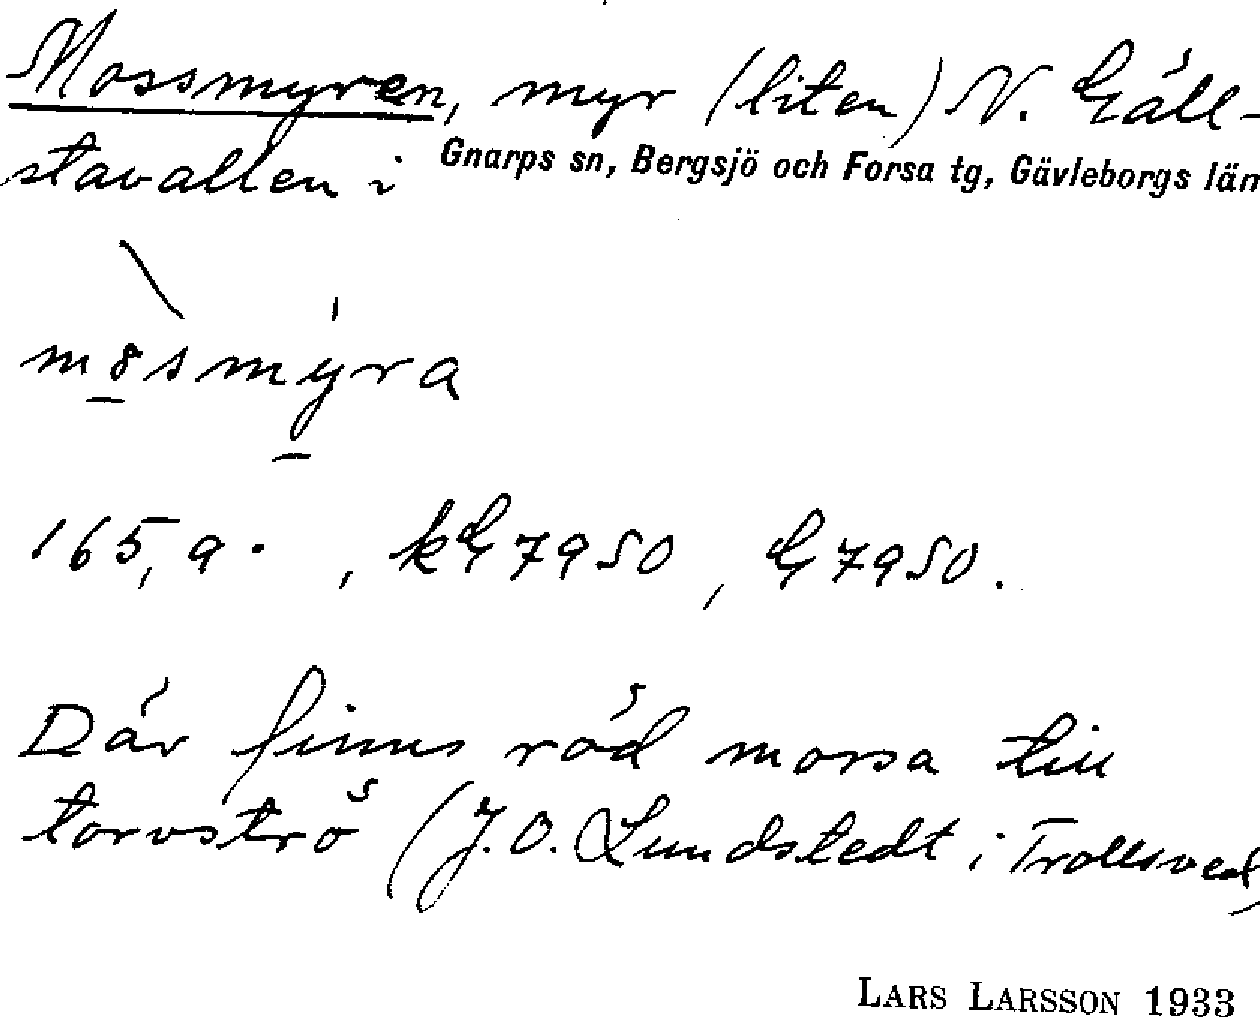 Mossmyren, myr (liten) N. Gäll-
stavallen i Gnarps sn, Bergsjö och Forsa tg, Gävleborgs län
mo̱smy̱ra
165, a. , kG 7950, G 7950.
Där finns röd mossa till
torvströ (J. O. Lundstedt i Trollsved)
LARS LARSSON 1933